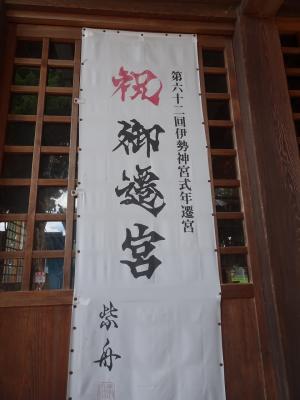 第六十二回伊勢神宮式年遷宮
祝御遷宮
紫舟